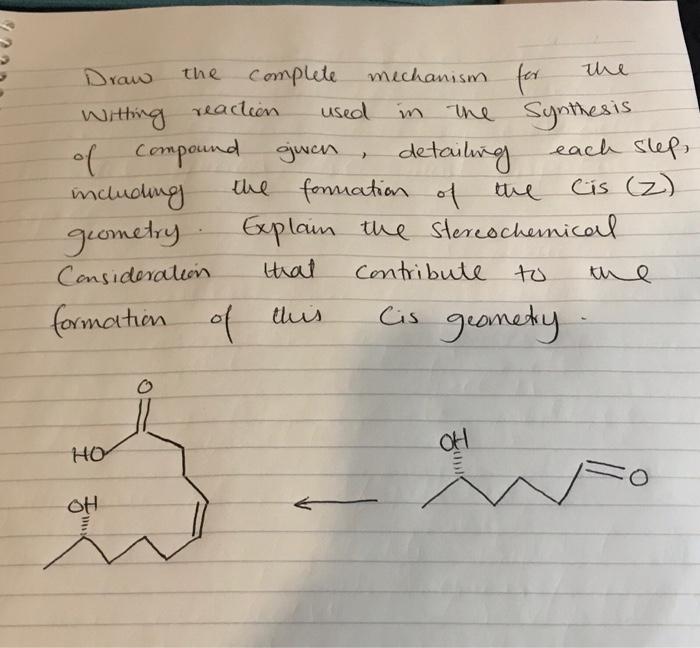 Draw the complete mechanism for the
Witting reaction used in the Synthesis
of compound given, detailing each step,
including the formation of the Cis (Z)
geometry. Explain the stereochemical
Consideration that contribute to the
formation of this Cis geometry.
O
HO
OH
OH
O